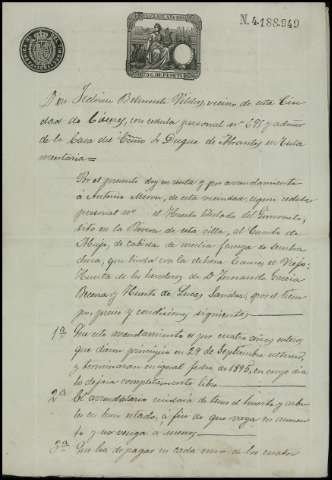 N. 4.188.949
Don Federico Belmonte Vildes, vecino de esta Ciu
dad de Cáceres, con cedula personal nº 671 y admor
de la Casa del Exmo Sr Duque de Abrantes en Esta
mentaria =
Por el presente doy en renta y por arrendamiento
á Antonio de esta vecindad, segun cedula
personal nº el Huerto titulado del
sito en la Rivera de esta villa, al
de cabida de media fanega de sembra
dura, que linda con la dehesa Caceres el Viejo
Huerta de los herederos de D. Fernando Garcia
Becerra y Huerto de Lucas Sandra, por el tiem
po, precio y condiciones siguientes
1ª Que este arrendamiento es por cuatro años enteros
que dieron principio en 29 de Septiembre ultimo,
y terminaran en igual fecha de 1895, en cuyo dia
lo dejara completamente libre
2ª El arrendatario cuidará de tener el huerto y arbo
les en buen estado, á fin de que vaya en aumen
to y no venga á menos
3ª Que ha de pagar en cada uno de los cuatro